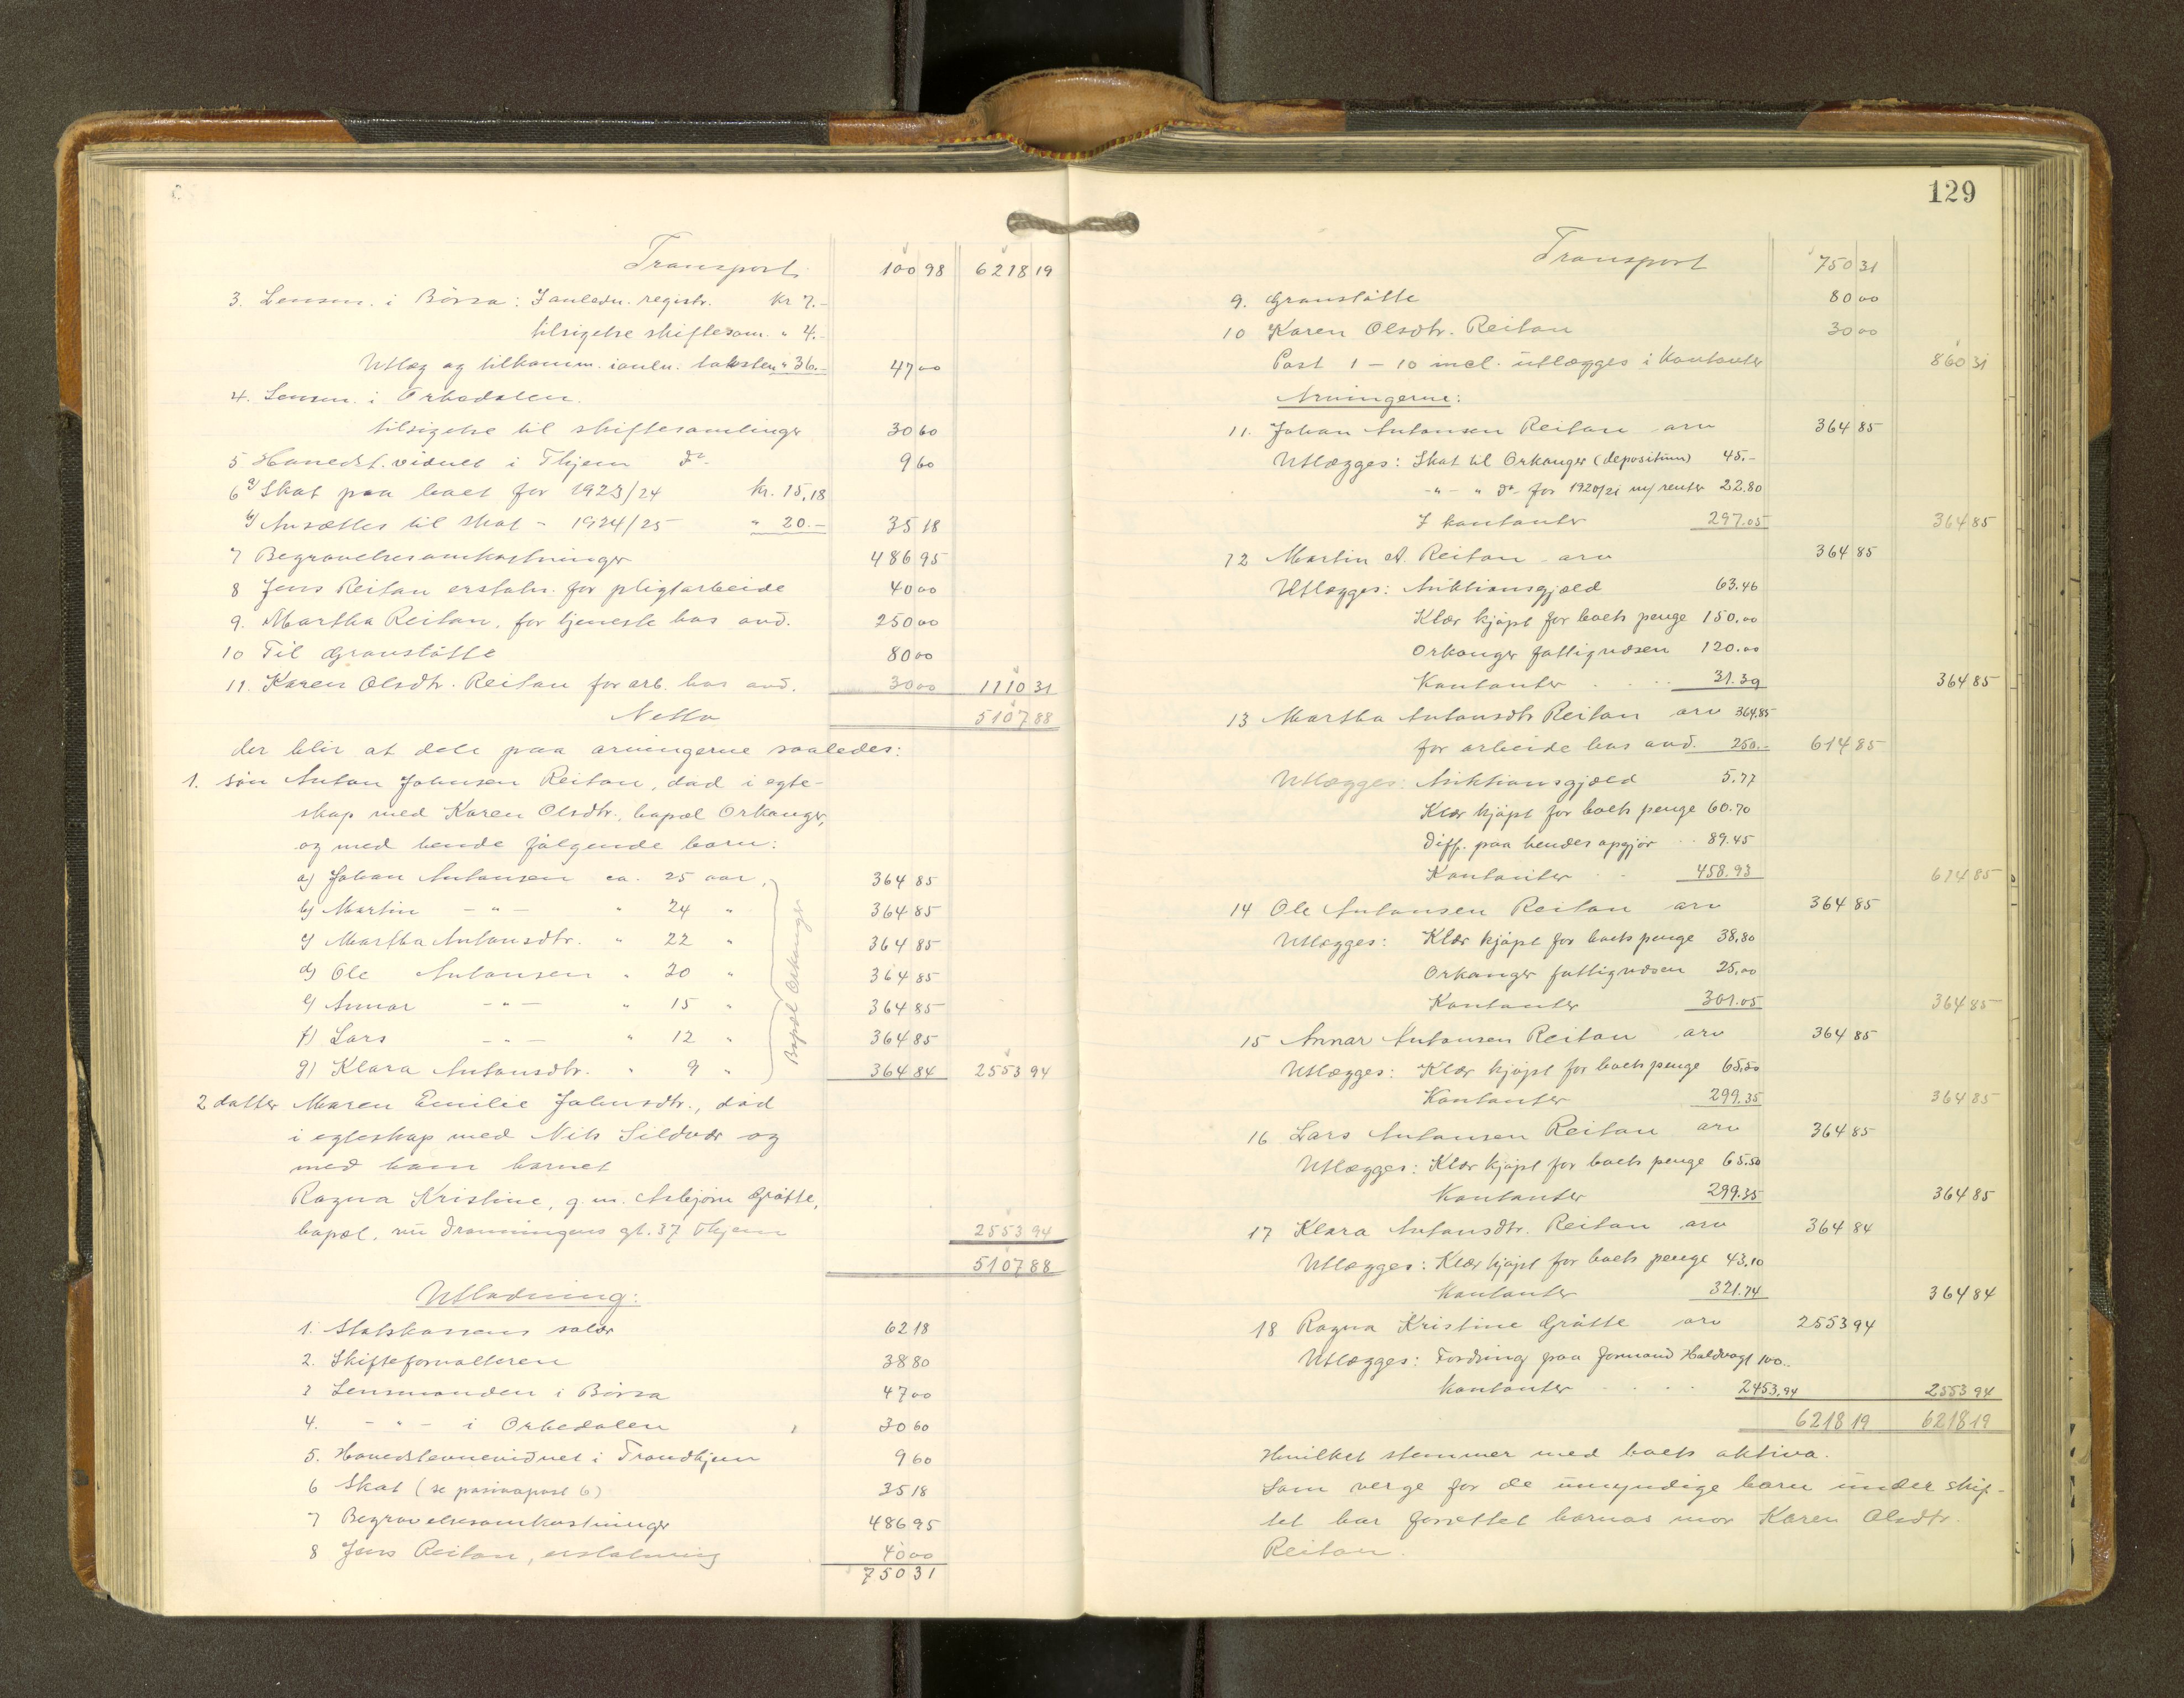 Transport 100 98 6218 19
3. Lensm. i Börsa: I anledn. registr. kr 7.-
tilsigelse skiftesam. " 4.-
Utlæg og tilkomm. i anln. taksten " 36.- 47 00
4. Lensm. i Orkedalen.
tilsigelse til skiftesamlinger 30 60
5 Hovedst.vidnet i Thjem do- 9 60
6 a/ Skat paa boet for 1923/24 kr. 15,18
b/ Ansættes til skat - 1924/25 " 20.- 35 18
7 Begravelsesomkostninger 486 95
8 Jens Reitan erstatn. for pligtarbeide 40 00
9. Martha Reitan, for tjeneste hos avd. 250 00
10 Til Gravstøtte 80 00
11. Karen Olsdtr. Reitan for arb. hos avd. 30 00 1110 31
Netto 5107 88
der blir at dele paa arvingerne saaledes:
1. søn Anton Johnsen Reitan, død i egte-
skap med Karen Olsdtr., bopæl Orkanger,
og med hende følgende barn:
a) Johan Antonsen ca. 25 aar, 364 85
b) Martin - " - " 24 " 364 85
c) Martha Antonsdtr. " 22 " 364 85
d) Ole Antonsen " 20 " 364 85
e) Annar - " - " 15 " 364 85
f) Lars - " - " 12 " 364 85
g) Klara Antonsdtr. " 9 " 364 84 2553 94
Bopæl Orkanger
2 datter Maren Emilie Johnsdtr., død
i egteskap med Nils Sildvær og
med ham barnet
Ragna Kristine, g. m. Asbjørn Grøtte,
bopæl. nu Dronningens gt. 37 Thjem 2553 94
5107 88
Utlodning:
1. Statskassens salær 62 18
2. Skifteforvalteren 38 80
3 Lensmanden i Börsa 47 00
4. - " - i Orkedalen 30 60
5. Hovedstevnevidnet i Trondhjem 9 60
6 Skat (se passivapost 6) 35 18
7 Begravelsesomkostninger 486 95
8 Jens Reitan, erstatning 40 00
750 31
129
Transport 750 31
9. Gravstøtte 80 00
10 Karen Olsdtr. Reitan 30 00
Post 1 - 10 incl. utlægges i kontanter 860 31
Arvingerne:
11. Johan Antonsen Reitan arv 364 85
Utlægges: Skat til Orkanger (depositum) 45.-
- " - " do- for 1920/21 m/ renter 22.80
I kontanter 297.05 364 85
12 Martin A. Reitan arv 364 85
Utlægges: Auktionsgjæld 63.46
Klær kjøpt for boets penge 150.00
Orkanger fattigvæsen 120.00
Kontanter 31.39 364 85
13 Martha Antonsdtr Reitan arv 364.85
for arbeide hos avd. 250.- 614 85
Utlægges: Auktionsgjæld 5.77
Klær kjøpt for boets penge 60.70
Diff. paa hendes opgjør 89.45
Kontanter 458.93 614 85
14 Ole Antonsen Reitan arv 364 85
Utlægges: Klær kjøpt for boets penge 38.80
Orkanger fattigvæsen 25.00
Kontanter 301.05 364 85
15 Annar Antonsen Reitan arv 364 85
Utlægges: Klær kjøpt for boets penge 65.50
Kontanter 299.35 364 85
16 Lars Antonsen Reitan arv 364 85
Utlægges: Klær kjøpt for boets penge 65.50
Kontanter 299.35 364 85
17 Klara Antonsdtr. Reitan arv 364 84
Utlægges: Klær kjøpt for boets penge 43.10
Kontanter 321.74 364 84
18 Ragna Kristine Grøtte arv 2553 94
Utlægges: Fordring paa formand Haldvogt 100.-
kontanter 2453.94 2553 94
6218 19 6218 19
Hvilket stemmer med boets aktiva.
Som verge for de umyndige barn under skif-
tet har forrettet barnas mor Karen Olsdtr.
Reitan.